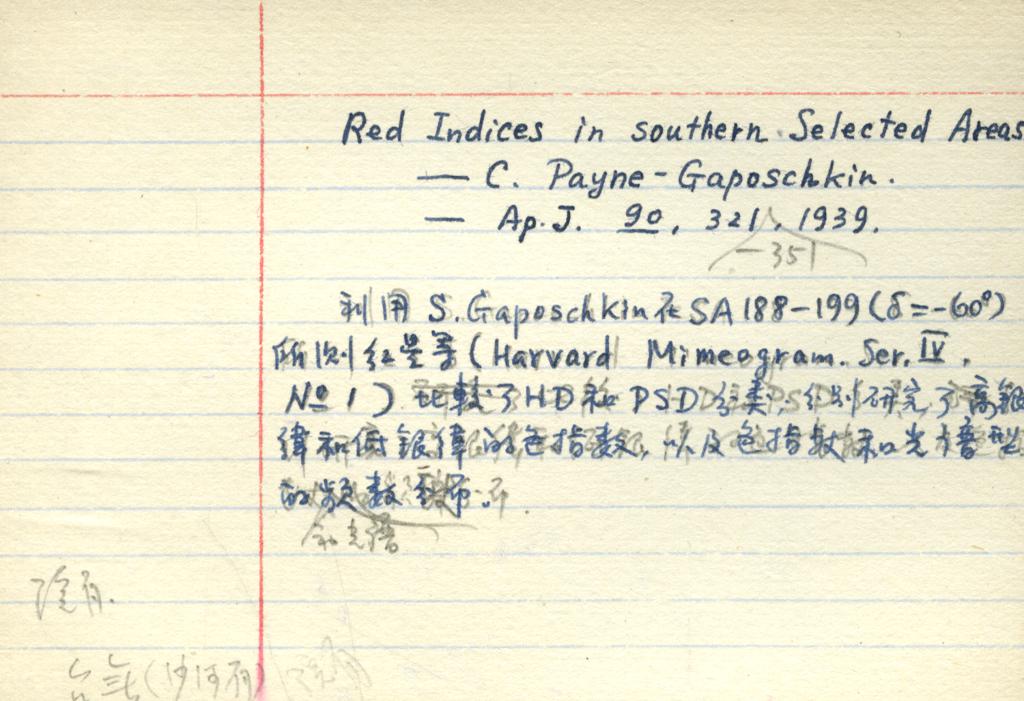 Red Indices in southern Selected Areas
— C. Payne-Gaposchkin.
— Ap. J. 90, 321, 1939.
—351
利用 S. Gaposchkin 在 SA 188-199 (δ=-60°)
所测红星等 (Harvard Mimeogram. Ser. IV,
№ 1) 比較了HD和 PSD分类, 分别研究了高銀
緯和低銀緯的色指数, 以及色指数和光譜型
的频数分布.
和光谱